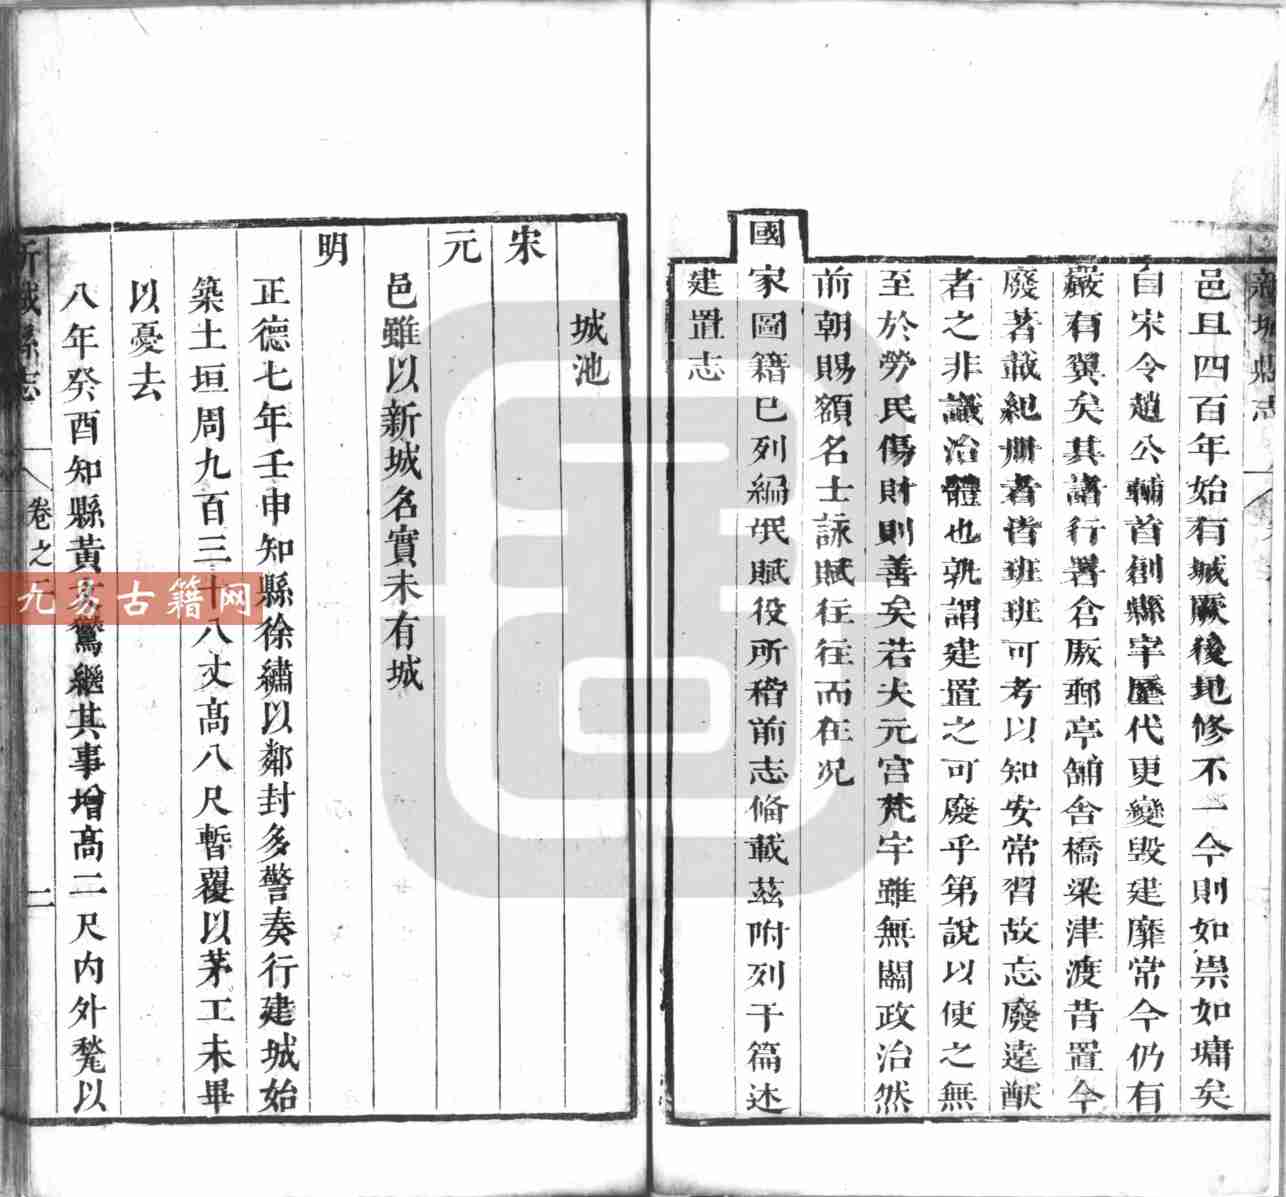 邑且四百年始有城厥後圮修不一今則如崇如墉矣
自宋令趙公輔首創縣宰歷代更變毀建靡常今仍有
嚴有翼矣其諸行署倉厫郵亭舖舍橋梁津渡昔置今
廢著載紀冊者皆班班可考以知安常習故忘廢遠猷
者之非識治體也孰謂建置之可廢乎第說以使之無
至於勞民傷財則善矣若夫元宮梵宇雖無關政治然
前朝賜額名士詠賦往往而在况
國家圖籍已列編氓賦役所稽前志俻載茲附列于篇述
建置志
城池
宋
元
邑雖以新城名實未有城
明
正德七年壬申知縣徐繡以鄰封多警奏行建城始
築土垣周九百三十八丈高八尺暫覆以茅工未畢
以憂去
八年癸酉知縣黃文鸑繼其事增高二尺內外甃以
新城縣志
卷之
二
九易古籍网